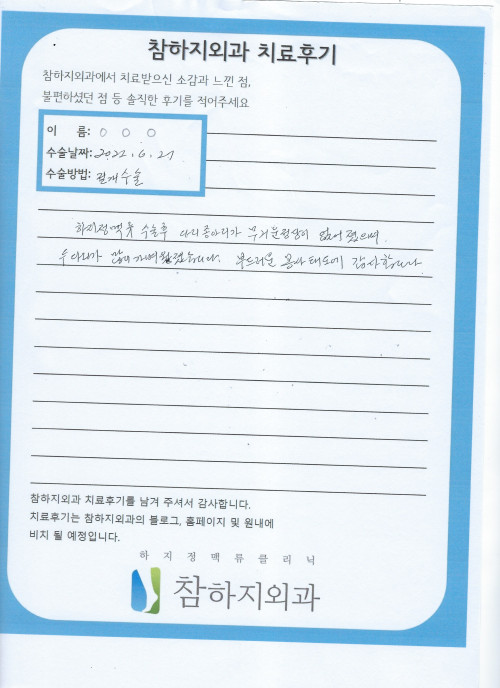 참하지외과 치료후기
참하지외과에서 치료받으신 소감과 느낀 점,
불편하셨던 점 등 솔직한 후기를 적어주세요
이 름: ○ ○ ○
수술날짜: 2022. 6. 27
수술방법: 절개수술
하지정맥 수술후 다리종아리가 무거운현상이 없어졌으며
두다리가 많이 가벼워졌습니다. 부드러운 봉사태도에 감사합니다
참하지외과 치료후기를 남겨 주셔서 감사합니다.
치료후기는 참하지외과의 블로그, 홈페이지 및 원내에
비치 될 예정입니다.
하 지 정 맥 류 클 리 닉
참하지외과